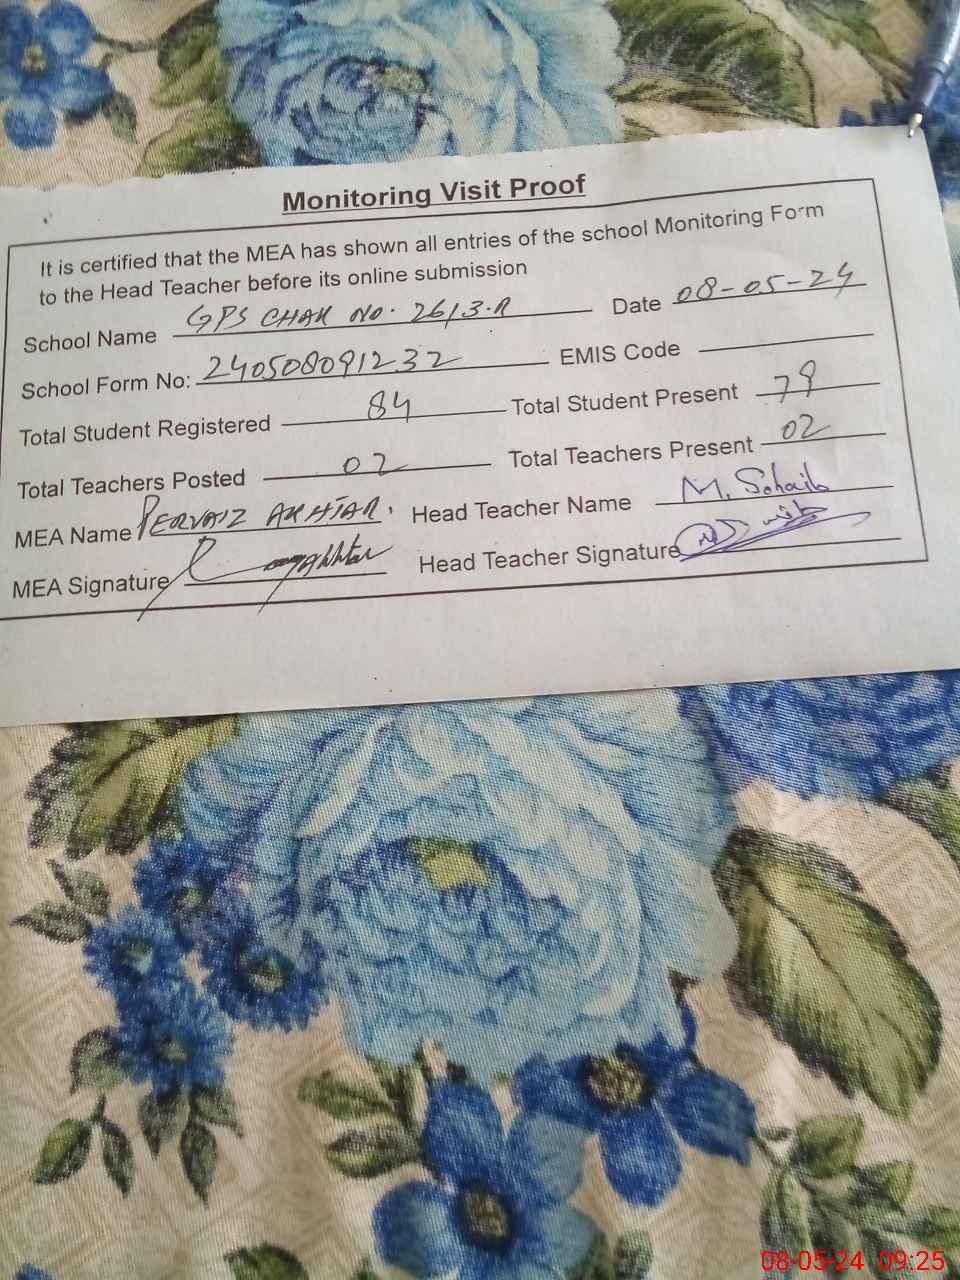 Monitoring Visit Proof
It is certified that the MEA has shown all entries of the school Monitoring Form
to the Head Teacher before its online submission
School Name GPS CHAK NO. 26/3.R Date 08-05-24
School Form No: 240508091232 EMIS Code
Total Student Registered 84 Total Student Present 79
Total Teachers Posted 02 Total Teachers Present 02
MEA Name PERVAIZ AKHTAR. Head Teacher Name M. Sohaib
MEA Signature Head Teacher Signature
08-05-24 09:25